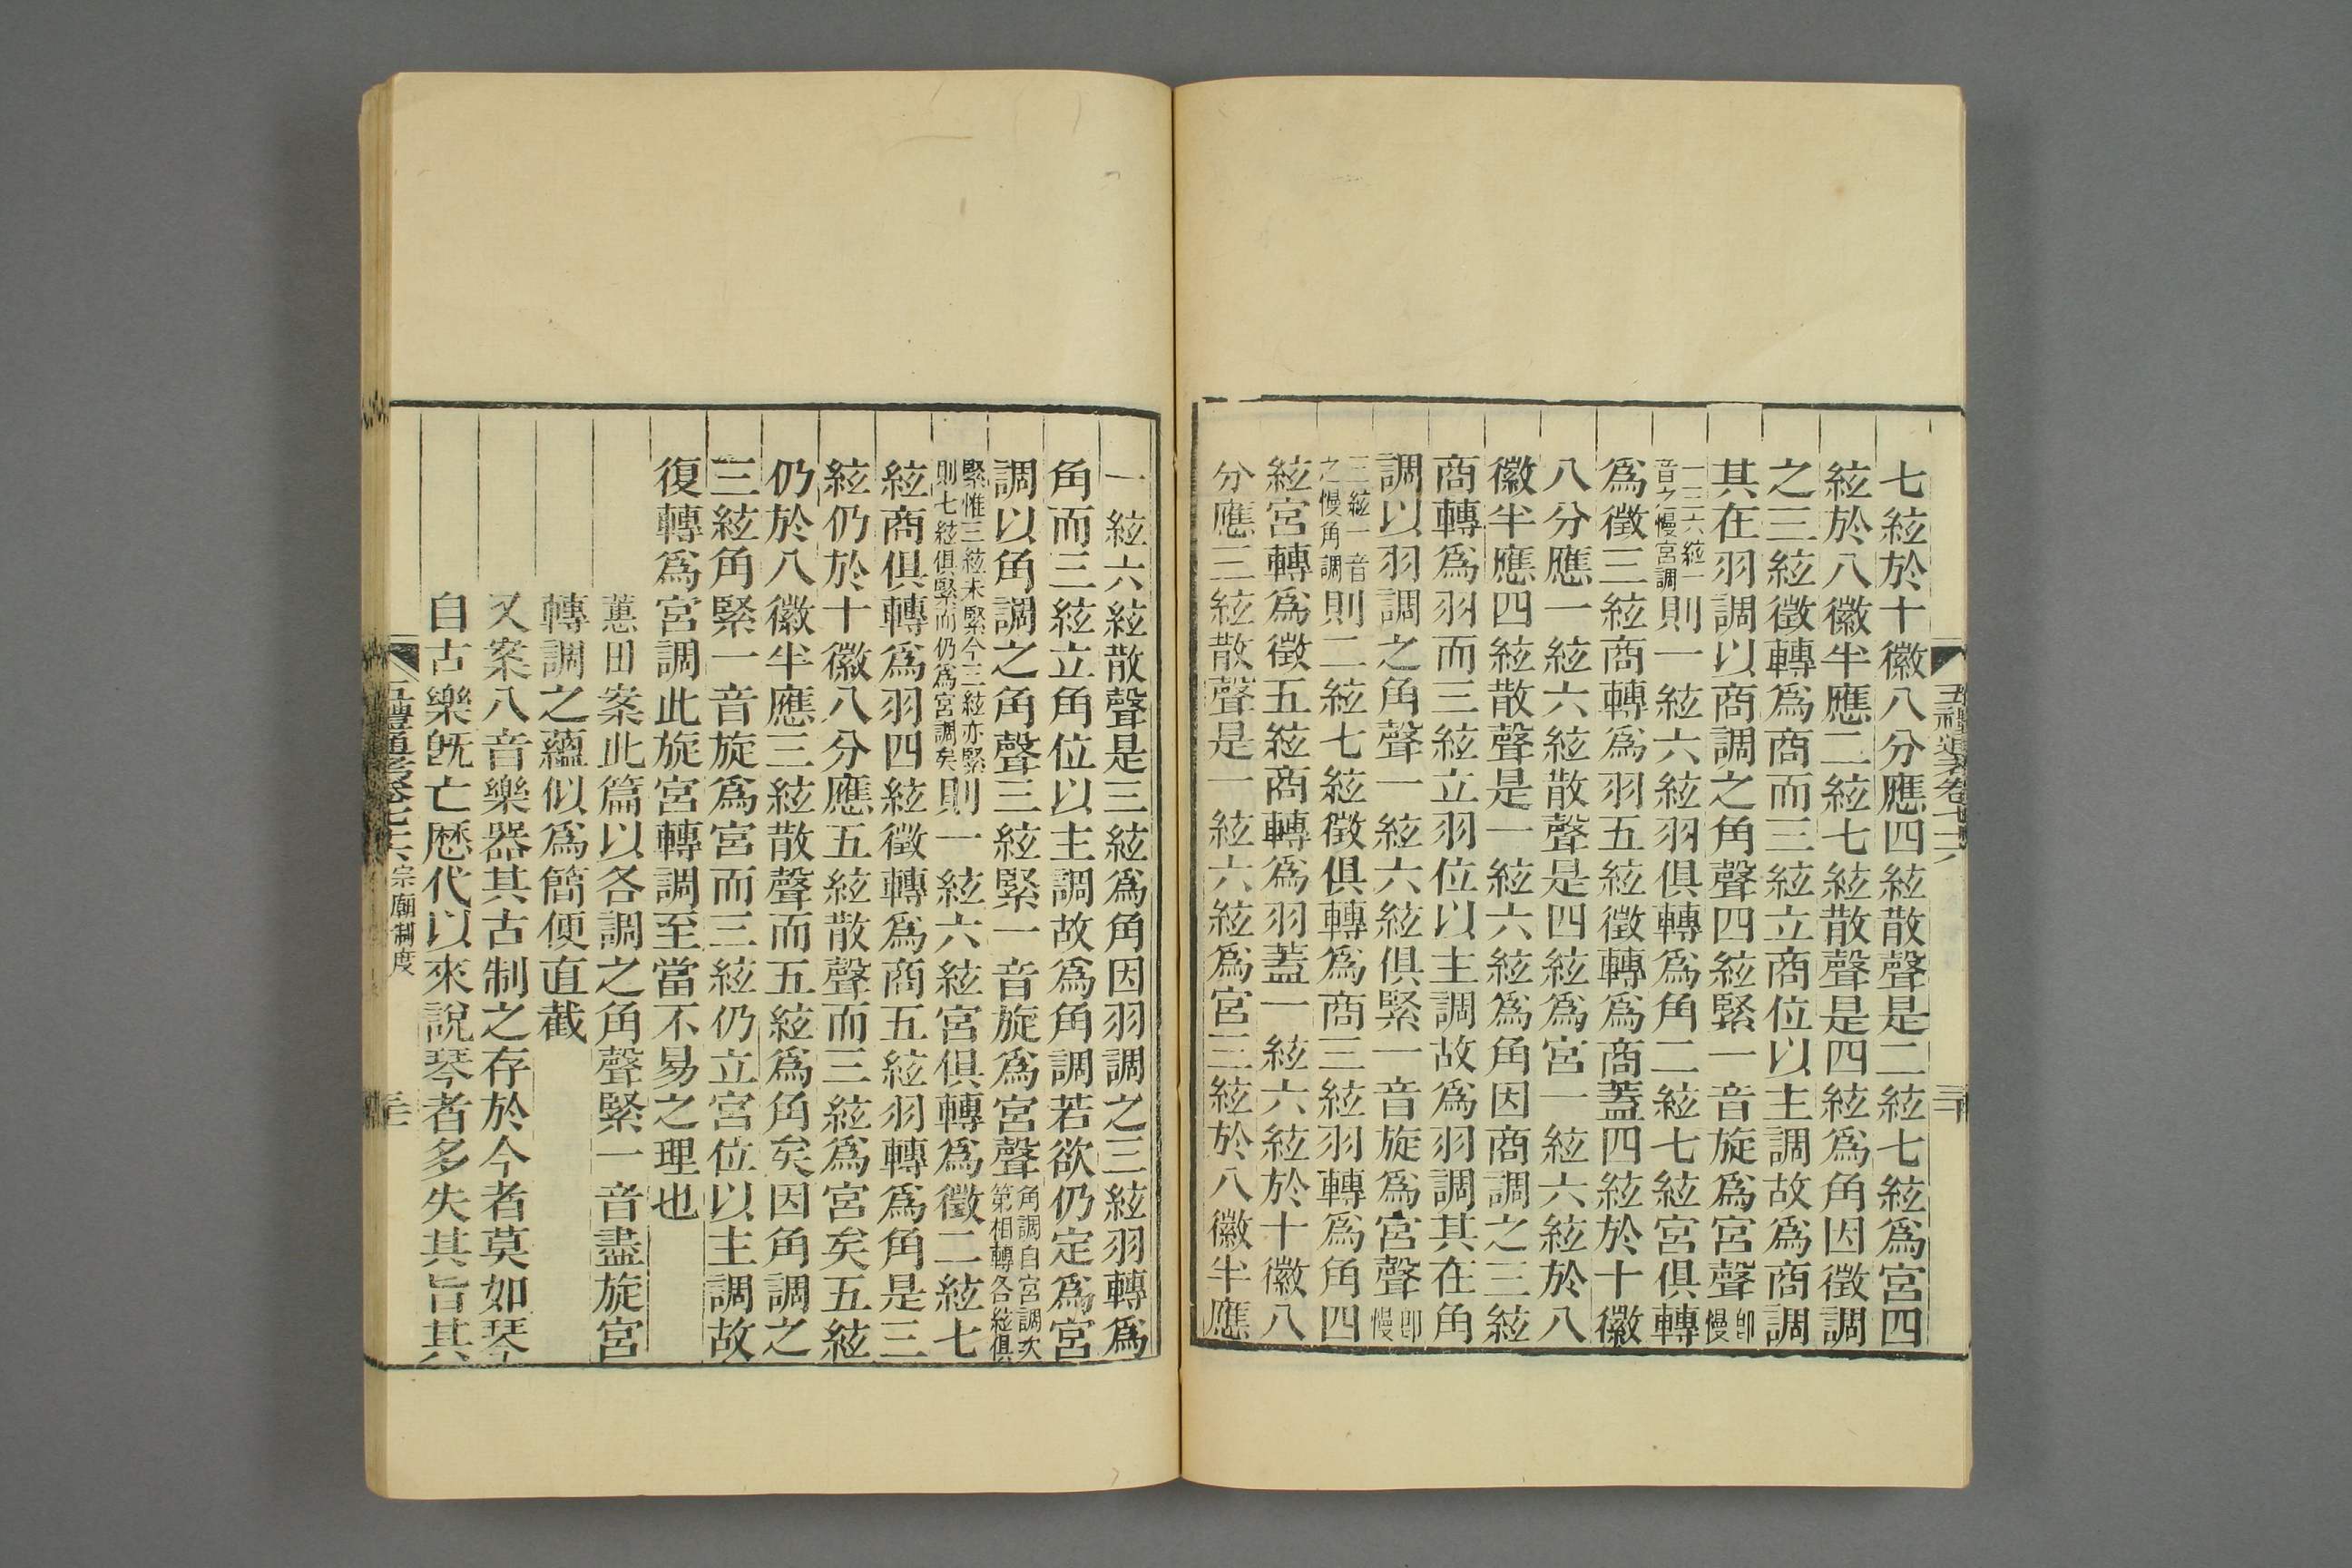 七絃於十徽八分應四絃散聲是二絃七絃爲宮四
絃於八徽半應二絃七絃散聲是四絃爲角因徵調
之三絃徵轉爲商而三絃立商位以主調故爲商調
其在羽調以商調之角聲四絃緊一音旋爲宮聲即慢
一三六絃一音之慢宮調則一絃六絃羽俱轉爲角二絃七絃宮俱轉
爲徵三絃商轉爲羽五絃徵轉爲商蓋四絃於十徽
八分應一絃六絃散聲是四絃爲宮一絃六絃於八
徽半應四絃散聲是一絃六絃爲角因商調之三絃
商轉爲羽而三絃立羽位以主調故爲羽調其在角
調以羽調之角聲一絃六絃俱緊一音旋爲宮聲即慢
三絃一音之慢角調則二絃七絃徵俱轉爲商三絃羽轉爲角四
絃宮轉爲徵五絃商轉爲羽蓋一絃六絃於十徽八
分應三絃散聲是一絃六絃爲宮三絃於八徽半應
一絃六絃散聲是三絃爲角因羽調之三絃羽轉爲
角而三絃立角位以主調故爲角調若欲仍定爲宮
調以角調之角聲三絃緊一音旋爲宮聲角調自宮調次第相轉各絃俱
緊惟三絃未緊今三絃亦緊則七絃俱緊而仍爲宮調矣則一絃六絃宮俱轉爲徵二絃七
絃商俱轉爲羽四絃徵轉爲商五絃羽轉爲角是三
絃仍於十徽八分應五絃散聲而三絃爲宮矣五絃
仍於八徽半應三絃散聲而五絃爲角矣因角調之
三絃角緊一音旋爲宮而三絃仍立宮位以主調故
復轉爲宮調此旋宮轉調至當不易之理也
蕙田案此篇以各調之角聲緊一音盡旋宮
轉調之蘊似爲簡便直截
又案八音樂器其古制之存於今者莫如琴
自古樂旣亡歷代以來說琴者多失其旨其
五禮通考卷七十六 宗廟制度